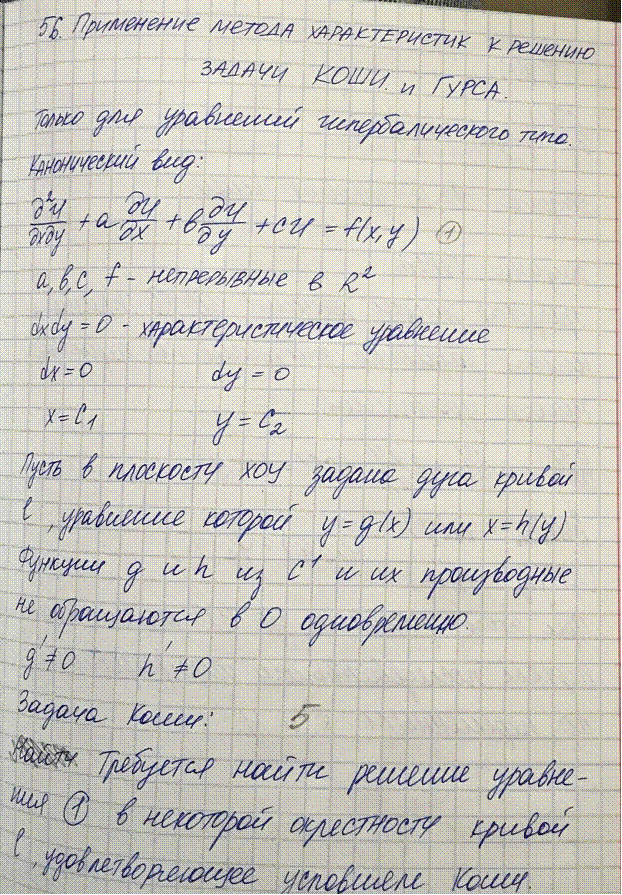 56. Применение метода характеристик к решению
задачи Коши и Гурса.
Только для уравнений гипербалического типа.
Канонический вид:
∂²U/∂x∂y + a ∂U/∂x + b ∂U/∂y + cU = f(x,y) (1)
a, b, c, f - непрерывные в R²
dxdy = 0 - характеристическое уравнение
dx = 0 dy = 0
x = C1 y = C2
Пусть в плоскости XOY задана дуга кривой
l, уравнение которой y = g(x) или x = h(y)
Функции g и h из C¹ и их производные
не обращаются в 0 одновременно.
g' ≠ 0 h' ≠ 0
Задача Коши: 5
Требуется найти решение уравне-
ния (1) в некоторой окрестности кривой
l, удовлетворяющее условием Коши.